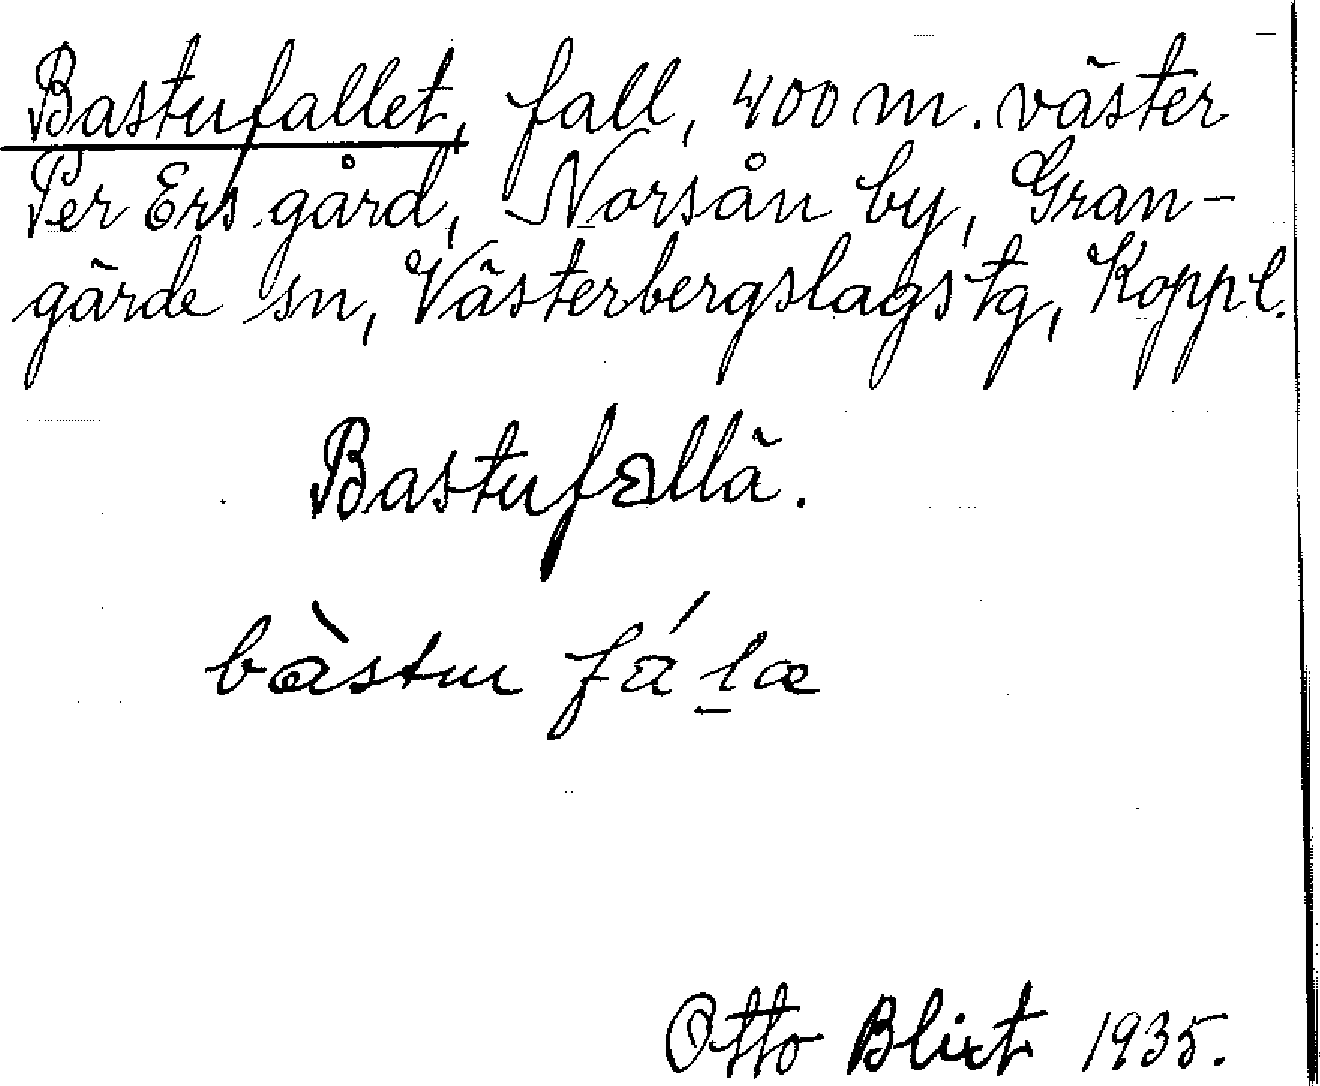 Bastufallet, fall, 400 m. väster
Per Ers gård, Norsån by, Gran-
gärde sn, Västerbergslags tg, Koppl.
Bastufallä.
bàstu fálæ
Otto Blixt 1935.